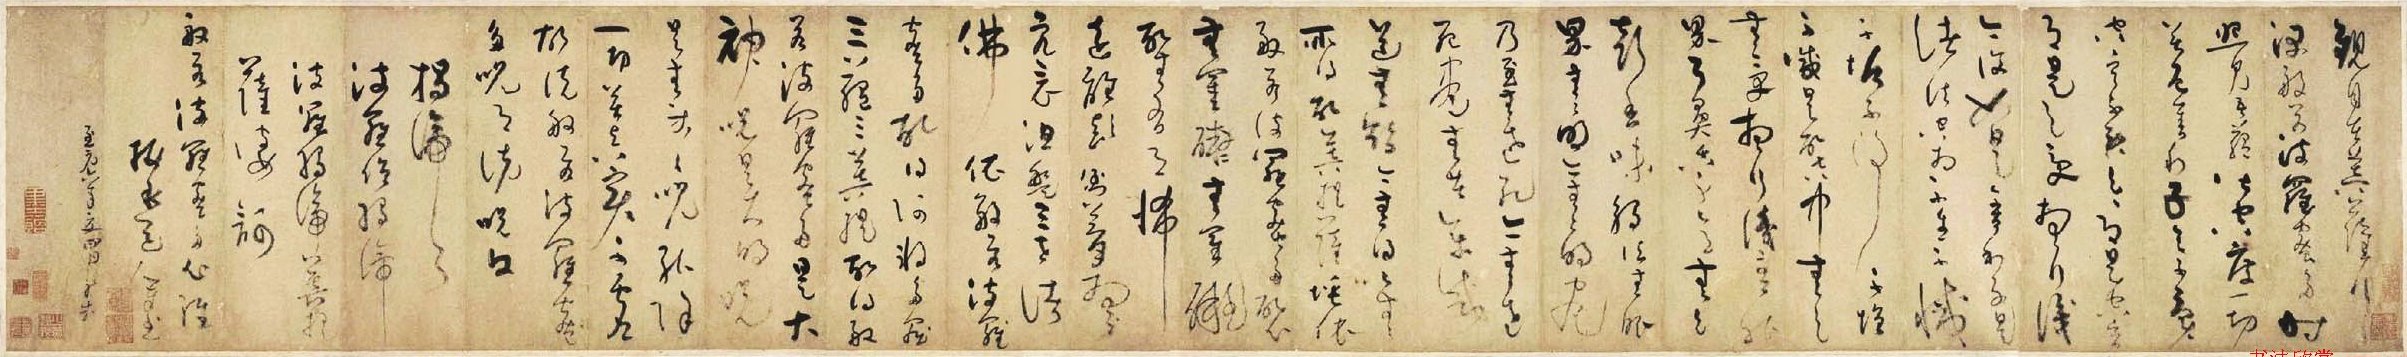 觀自在菩薩行
深般若波羅蜜多時
照見五蘊皆空度一切
苦厄舍利子色不異
空空不異色色即是空空
即是色受想行識
亦復如是舍利子是
諸法空相不生不滅
不垢不淨不增
不減是故空中無色
無受想行識無眼
耳鼻舌身意無色
聲香味觸法無眼
界無無明亦無無明盡
乃至無老死亦無老
死盡無苦集滅
道無智亦無得以無
所得故菩提薩埵依
般若波羅蜜多故心
無罣礙無罣礙
故無有恐怖
遠離顛倒夢想
究竟涅槃三世諸
佛依般若波羅
蜜多故得阿耨多羅
三藐三菩提故知般
若波羅蜜多是大
神咒是大明咒
是無等等咒能除
一切苦真實不虛
故說般若波羅蜜
多咒即說咒曰
揭諦
波羅僧揭諦
波羅揭諦菩提
薩婆訶
般若波羅蜜多心經
梅花道人書
至元六年
书法欣赏